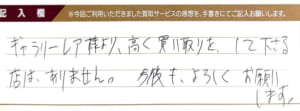 記入欄 ※今回ご利用いただきました買取サービスの感想を、手書きにてご記入お願いします。
ギャラリーレア様より、高く買い取りを、して下さる
店は、ありません。今後も、よろしくお願い
します。